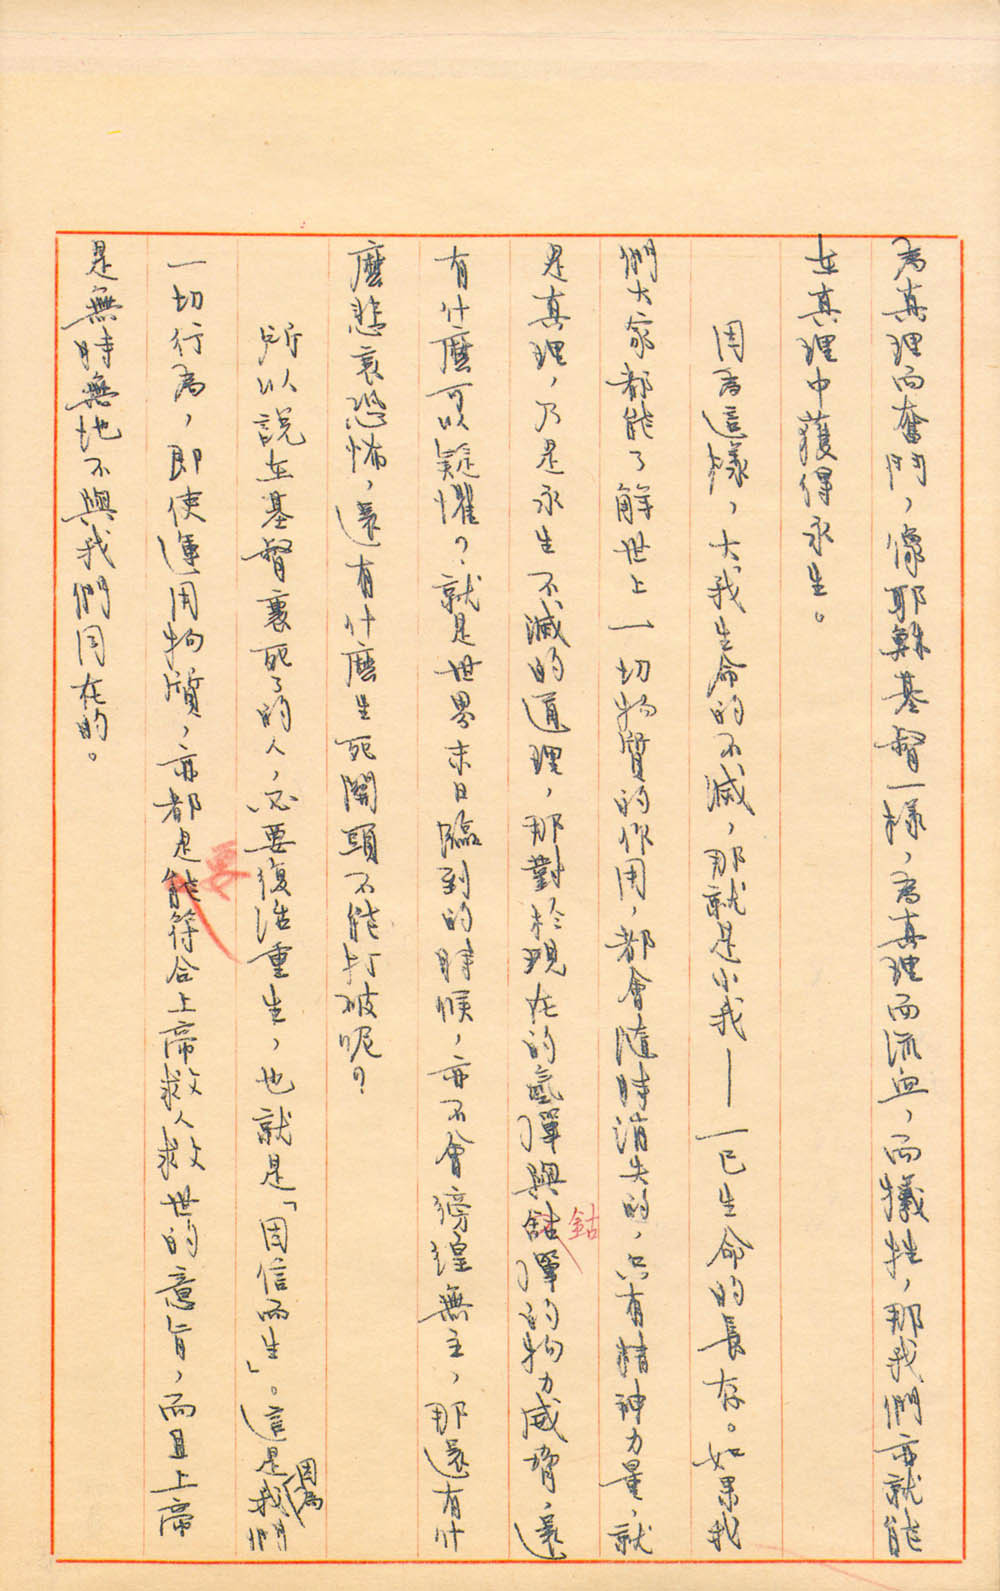 為真理而奮鬥，像耶穌基督一樣，為真理而流血，而犧牲，那我們亦就能
在真理中獲得永生。
因為這樣，大我生命的不滅，那就是小我——一己生命的長存。如果我
們大家都能了解世上一切物質的作用，都會隨時消失的，只有精神力量，就
是真理，乃是永生不滅的道理，那對於現在的氫彈與鈷彈的物力威脅，還
鈷
有什麼可以疑懼？就是世界末日臨到的時候，亦不會徬徨無主，那還有什
麼悲哀恐怖，還有什麼生死關頭不能打破呢？
所以說在基督裏死了的人，必要復活重生，也就是「因信而生」。這是因為我們
一切行為，即使運用物質，亦都是能符合上帝救人救世的意旨，而且上帝
要
是無時無地不與我們同在的。